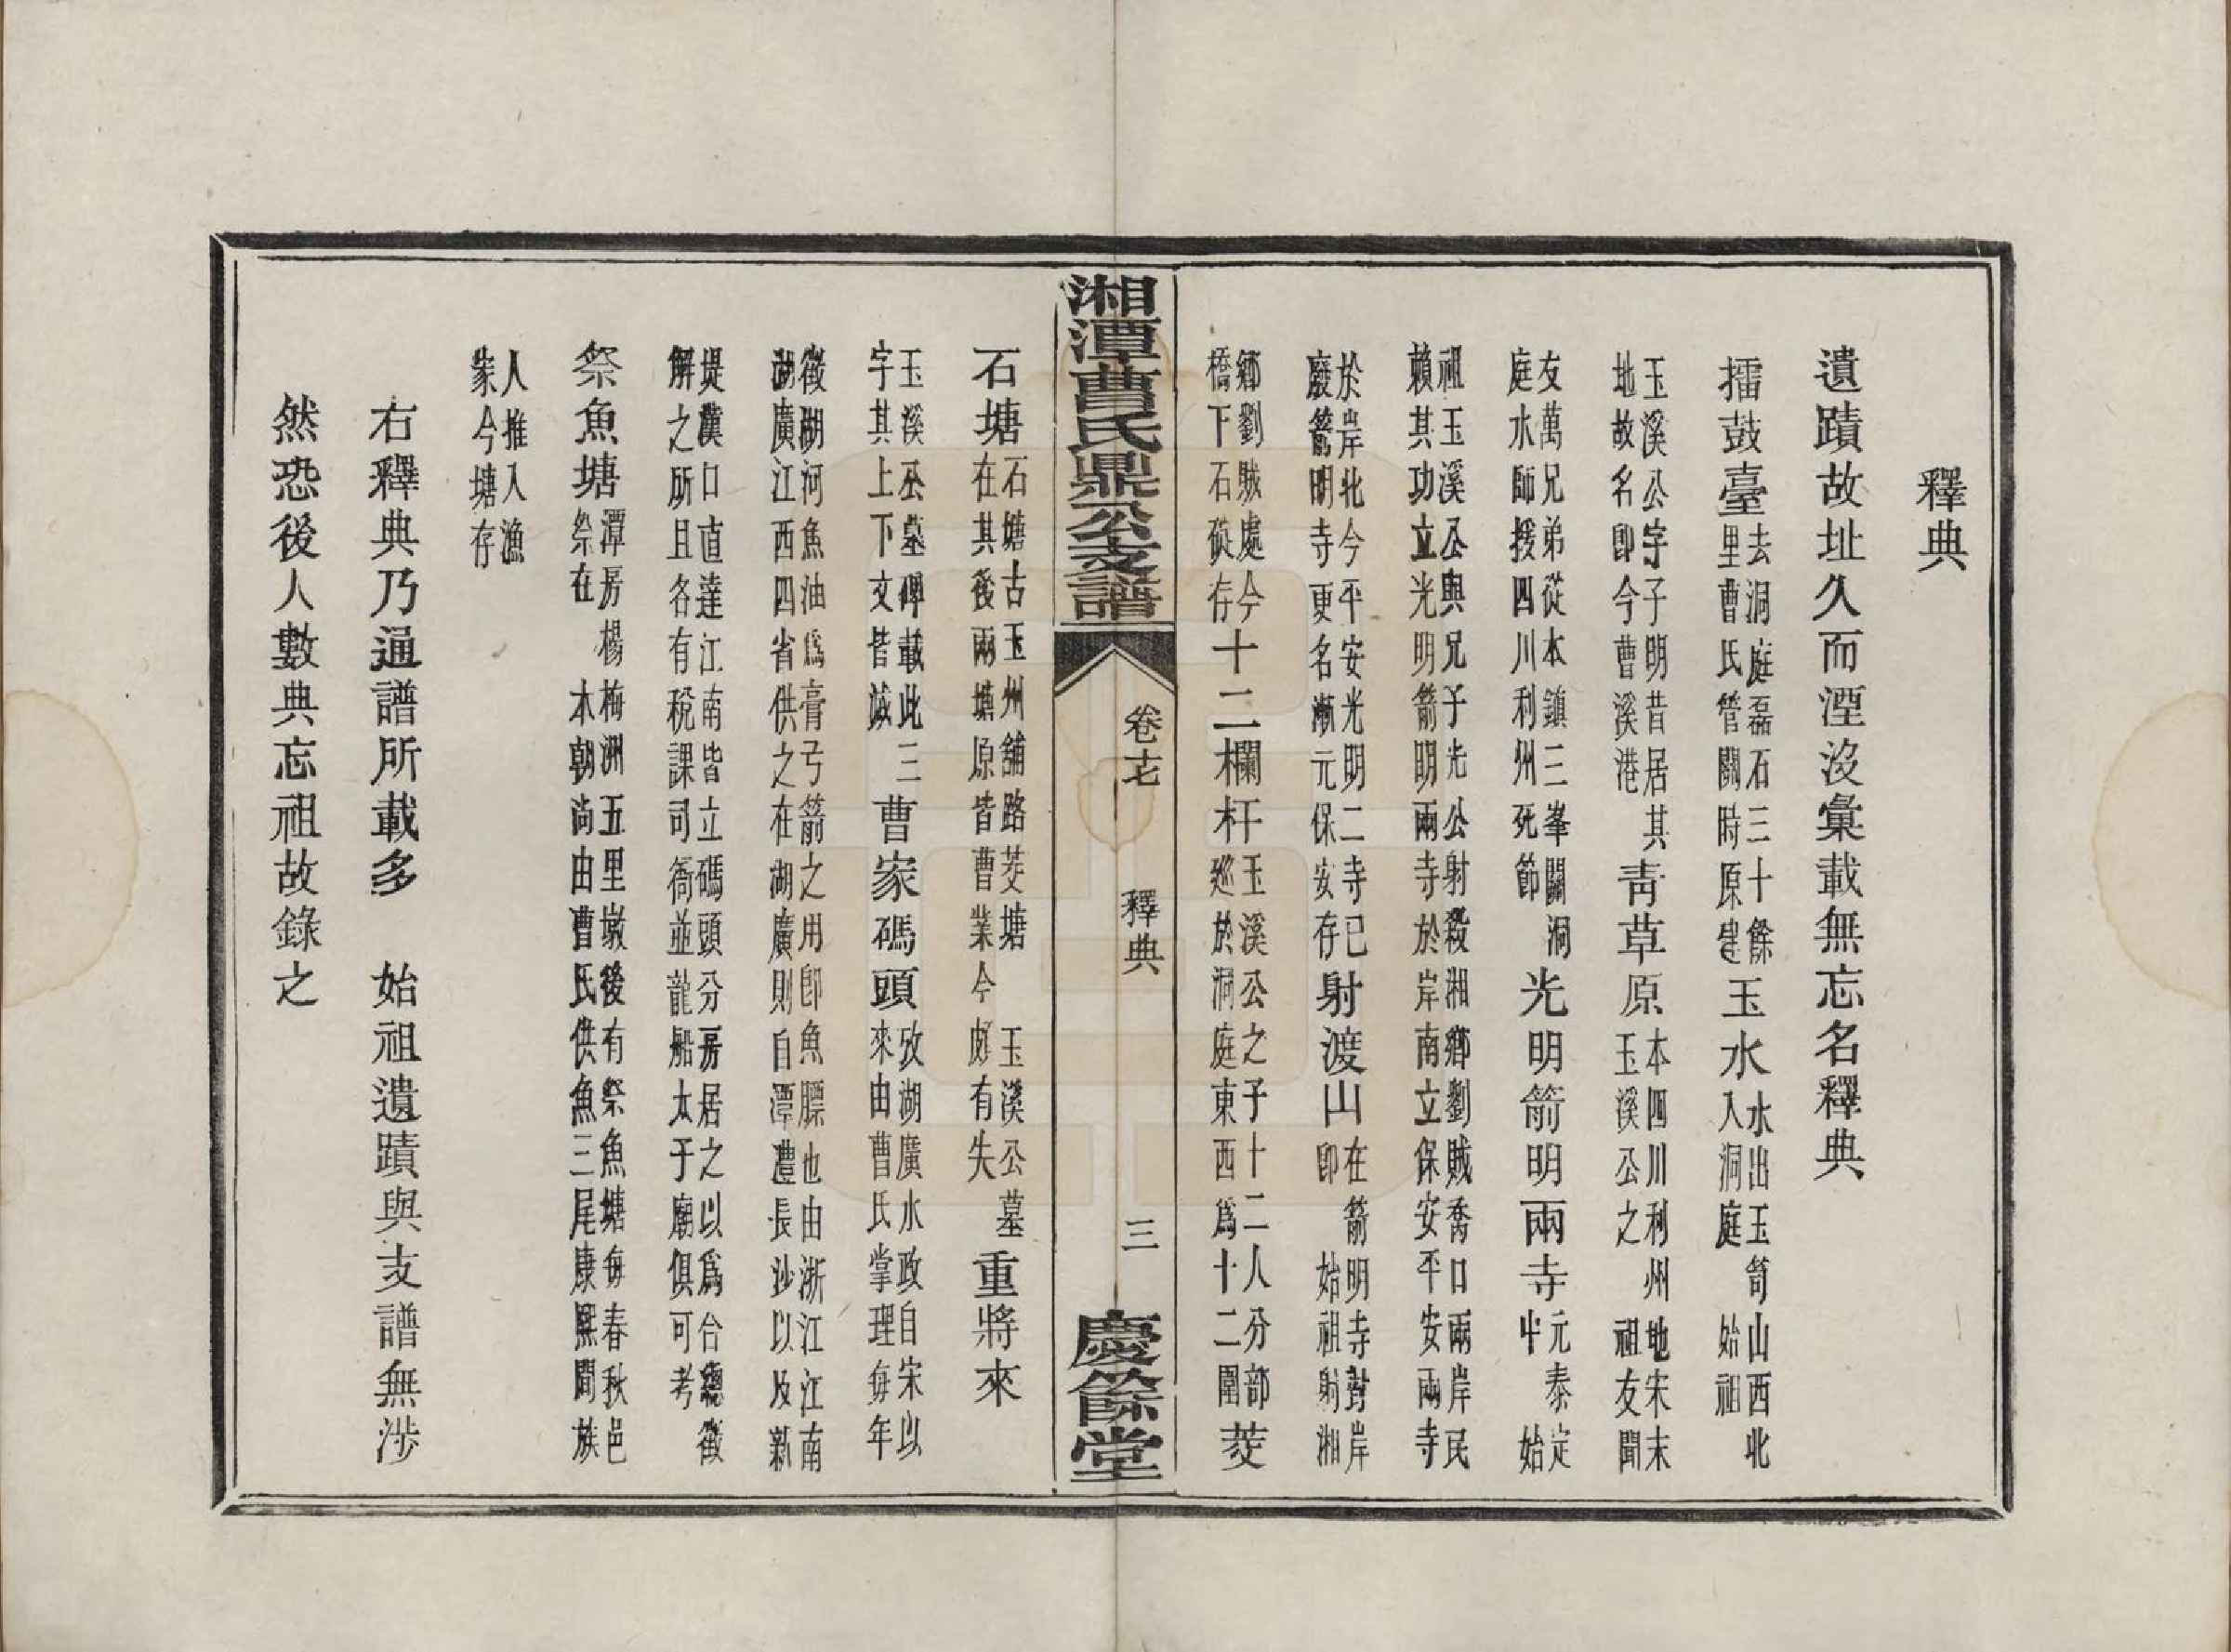 釋典
遺蹟故址久而湮沒彙載無忘名釋典
擂鼓臺去洞庭磊石三十餘
里曹氏管關時原建玉水水出玉笥山西北
入洞庭 始祖
玉溪公字子明昔居其
地故名卽今曹溪港青草原本四川利州地宋末
玉溪公之 祖友聞
友萬兄弟從本鎮三峯關 洞
庭水師援四川利州死節光明箭明兩寺元泰定
中 始
祖玉溪公與兄子光公射殺湘鄉劉賊喬口兩岸民
賴其功立光明箭明兩寺於岸南立保安平安兩寺
於岸北今平安光明二寺已
廢箭明寺更名漸元保安存射渡山在箭明寺對岸
卽 始祖射湘
鄉劉賊處今
橋下石磉存十二欄杆玉溪公之子十二人分部
巡於洞庭東西爲十二圍茭
湘潭曹氏鼎公支譜
卷十七
釋典
三
慶餘堂
石塘石塘古玉州舖路茭塘
在其後兩塘原皆曹業今 頗有失玉溪公墓重將來
玉溪公墓碑載此三
字其上下文皆滅 曹家碼頭攷湖廣水政自宋以
來由曹氏掌理每年
徵湖河魚油爲膏弓箭之用卽魚膘也由浙江江南
湖廣江西四省供之在湖廣則自潭澧長沙以及新
堤漢口直達江南皆立碼頭分房居之以爲台總徵
解之所且各有稅課司衙並龍船太子廟俱可考
祭魚塘潭房楊梅洲五里墩後有祭魚塘每春秋邑
祭在 本朝尚由曹氏供魚三尾康熙間族
人推入漁
家今塘存
右釋典乃通譜所載多 始祖遺蹟與支譜無涉
然恐後人數典忘祖故錄之